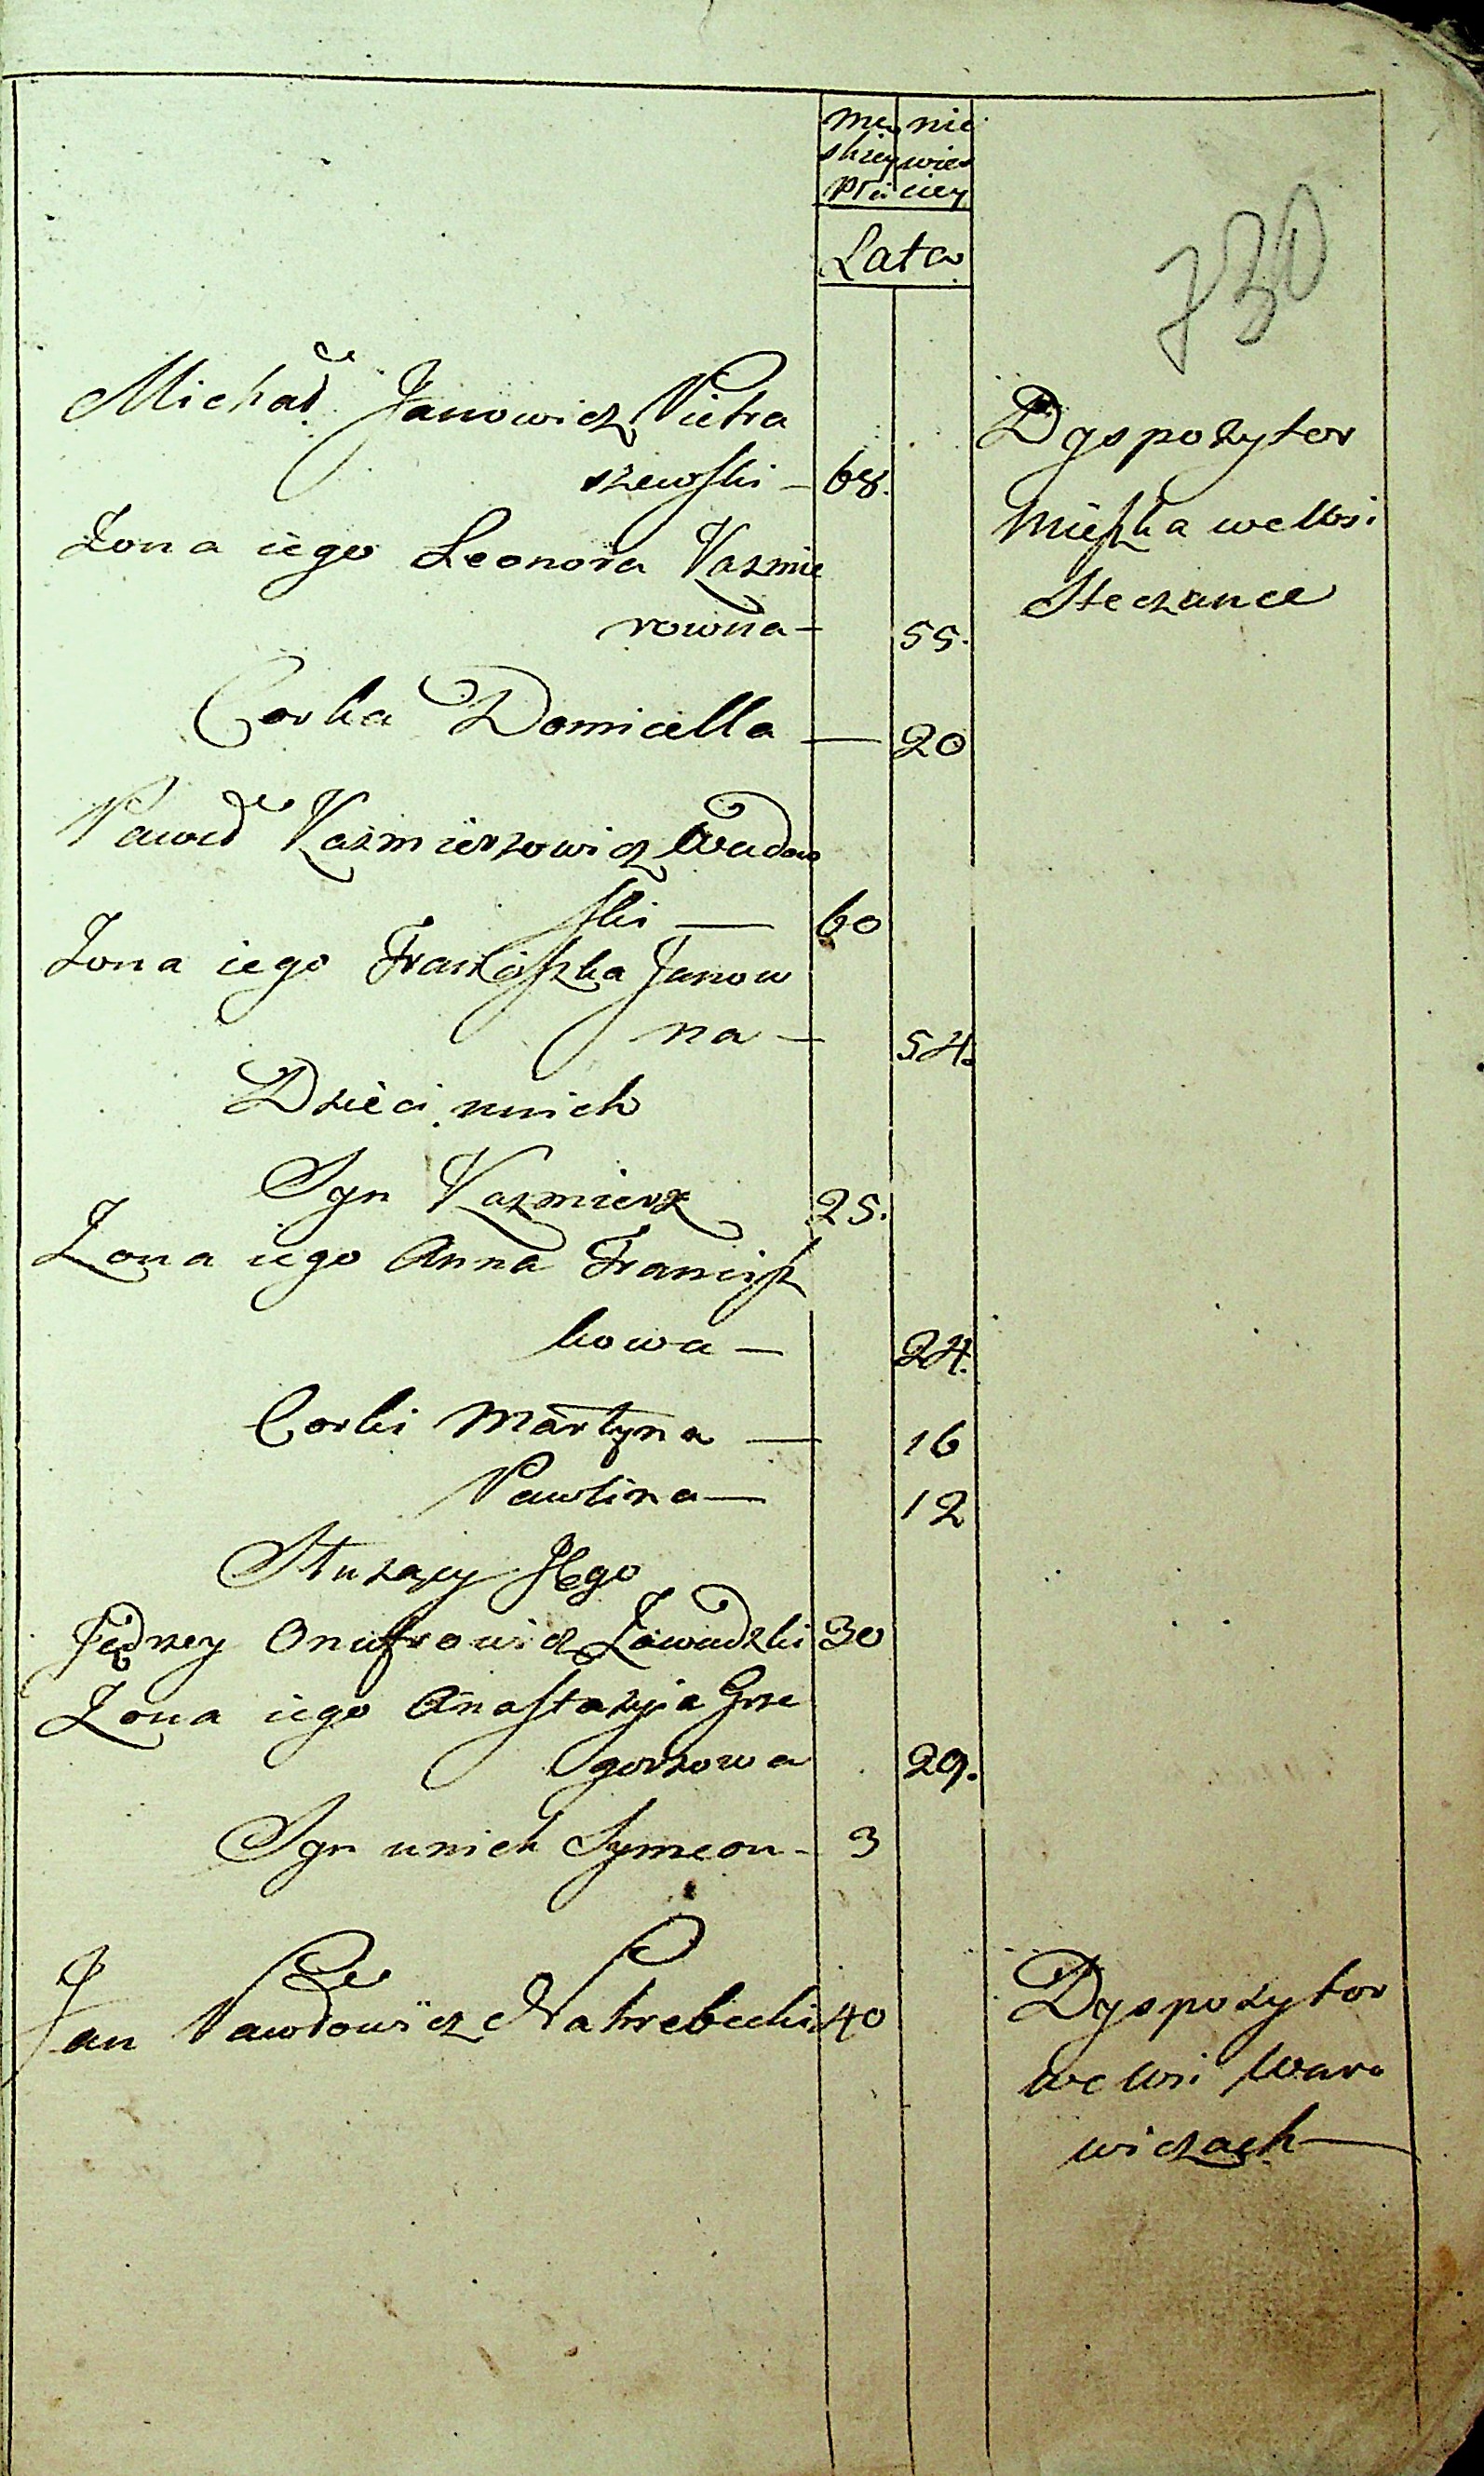 mę nie
skiey wies
płci ciey
Lata
730
Michał Janowicz Pietra
szewski - 68.
Dyspozytor
Zona iego Leonora Kazmie
mieszka we Wsi
rowna - 55.
Steczance
Corka Domicella - 20
Paweł Kazmierzowicz Wadow
ski - 60
Zona iego Franciszka Janow
na - 54.
Dzieci unich
Syn Kazmierz 25.
Zona iego Anna Francisz
kowa - 24.
Corki Martyna - 16
Pawlina - 12
Słuzący Jego
Jędrzey Onufrowicz Zawadzki 30
Zona iego Anastazyia Grze
gorzowa 29.
Syn unich Symeon - 3
Jan Pawłowicz Nahrebecki 40
Dyspozytor
we Wsi Waro
wiczach